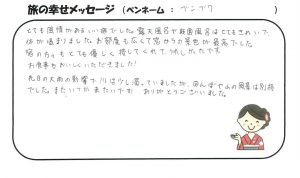 旅の幸せメッセージ (ペンネーム : ケンプク )
とても風情がある いい宿でした。露天風呂や庭園風呂はとてもきれいで、
体が温まりました。お部屋も広くて窓からの景色が最高でした。
宿の方々もとても優しく接してくれて、うれしかったです。
お食事もおいしくいただきました!
先日の大雨の影響で川は少し濁っていましたが、田んぼや山の風景は別格
でした。またいつか来たいです。ありがとうございました。